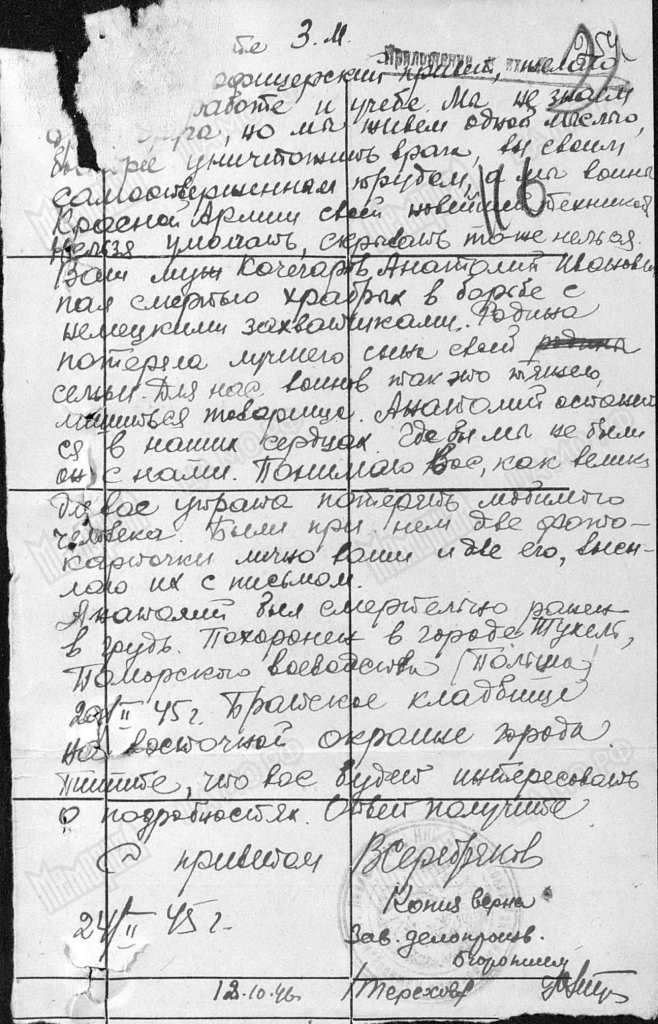 те З.М.
Приложение
офицерский привет, желаю
работе и учебе. Мы не знаем
друга, но мы живем одной мыслью,
быстрее уничтожить врага, вы своим
самоотверженным трудом, а мы воины
Красной Армии своей новейшей техникой
Нельзя умолчать, скрывать тоже нельзя.
Ваш муж Кочегаров Анатолий Иванович
пал смертью храбрых в борьбе с
немецкими захватчиками. Родина
потеряла лучшего сына своей родина
семьи. Для нас, воинов так это тяжело,
лишиться товарища. Анатолий останет
ся в наших сердцах. Где бы мы не были
он с нами. Понимаю Вас, как велика
для вас утрата потерять любимого
человека. Были при нем две фото-
карточки лично ваши и две его, высы-
лаю их с письмом.
Анатолий был смертельно ранен
в грудь. Похоронен в городе Тухель,
Поморского воеводства (Польша)
20/II 45 г. Братское кладбище
на восточной окраине города
Пишите, что вас будет интересовать
о подробностях. Ответ получите
С приветом В Серебряков
24/II 45 г.
Копия верна
Зав. делопроизв.
12.10.46 Терехова